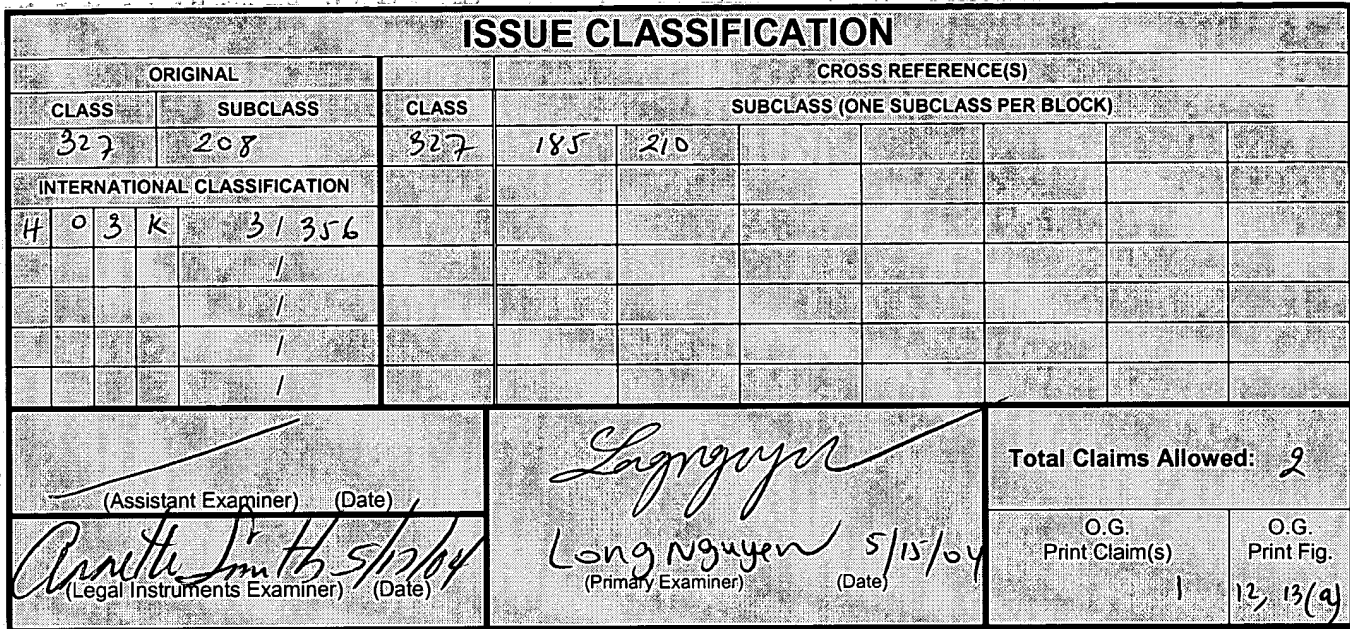 ISSUE CLASSIFICATION
ORIGINAL CROSS REFERENCE(S)
CLASS SUBCLASS CLASS SUBCLASS (ONE SUBCLASS PER BLOCK)
327 208 327 185 210
INTERNATIONAL CLASSIFICATION
H 0 3 K 3 / 356
/
/
/
/
Total Claims Allowed: 2
(Assistant Examiner) (Date)
Annette Smith
(Legal Instruments Examiner) (Date)
Long Nguyen 5/15/04
(Primary Examiner) (Date)
O.G. Print Claim(s)
1
O.G. Print Fig.
12, 13(a)